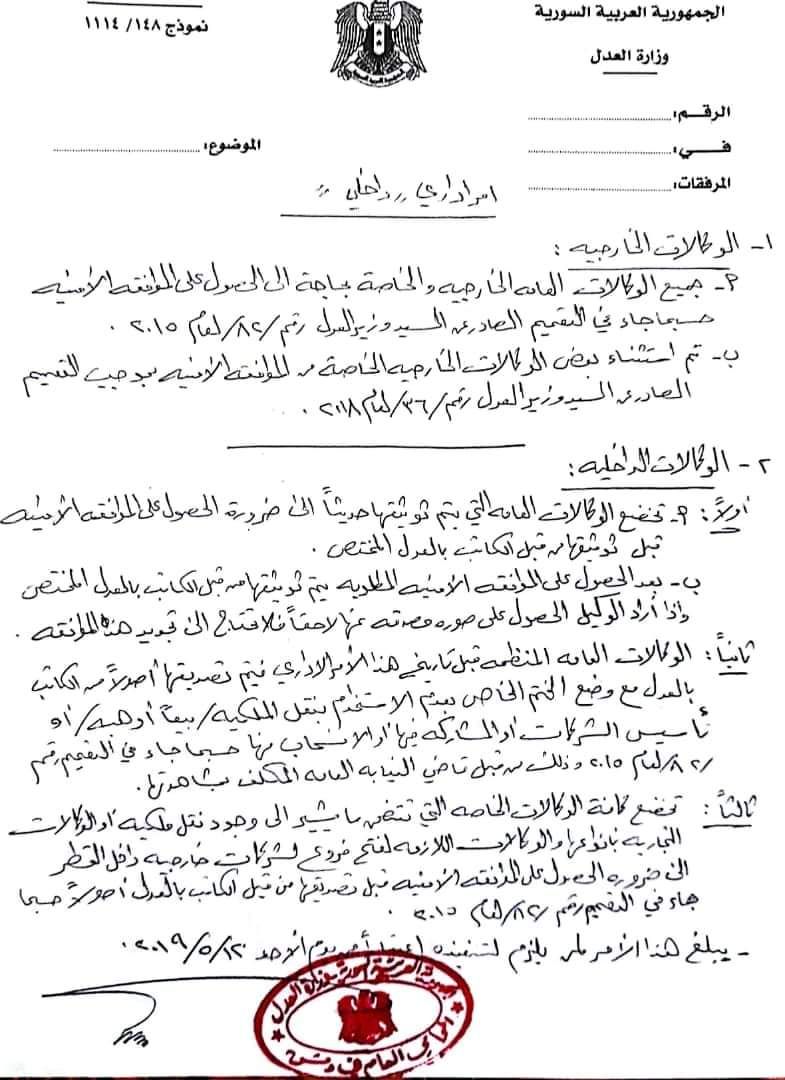 الجمهورية العربية السورية
وزارة العدل
نموذج ١٤٨/ ١١١٤
الرقـم:
فـي:
المرفقات:
الموضوع:
امر اداري ,, داخلي ,,
١- الوكالات الخارجيه :
٢- جميع الوكالات العامه الخارجيه والخاصة بحاجة الى الحصول على الموافقه الأمنيه
حسبما جاء في التعميم الصادر عن السيد وزير العدل رقم /٨٢/ لعام ٢٠١٥ .
ب- تم استثناء بعض الوكالات الخارجيه الخاصة من الموافقه الامنيه بموجب التعميم
الصادر عن السيد وزير العدل رقم /٣٦/ لعام ٢٠١٨ .
٢- الوكالات الداخليه :
أولاً: ٢- تخضع الوكالات العامه التي يتم توثيقها حديثاً الى ضرورة الحصول على الموافقه الأمنيه
قبل توثيقها من قبل الكاتب بالعدل المختص .
ب- بعد الحصول على الموافقه الامنيه المطلوبه يتم توثيقها من قبل الكاتب بالعدل المختص
واذا أراد الوكيل الحصول على صوره مصدقه عنها لاحقاً فلا تحتاج الى تجديد هذه الموافقه .
ثانياً: الوكالات العامه المنظمه قبل تاريخ هذا الأمر الاداري فيتم تصديقها أصولاً من الكاتب
بالعدل مع وضع الختم الخاص بعدم الاستخدام بنقل الملكيه / بيعاً أو هبه / أو
تأسيس الشركات أو المشاركه فيها او الانسحاب منها حسبما جاء في التعميم رقم
/٨٢/ لعام ٢٠١٥ وذلك من قبل قاضي النيابه العامه المكلف بمشاهدتها.
ثالثاً: تخضع كافة الوكالات الخاصه التي تتضمن ما يشير الى وجود نقل ملكيه أو الوكالات
التجاريه بأنواعها والوكالات اللازمه لفتح فروع لشركات خارجيه داخل القطر
الى ضروره الحصول على الموافقه الامنيه قبل تصديقها من قبل الكاتب بالعدل أصولاً حسبما
جاء في التعميم رقم /٨٢/ لعام ٢٠١٥ .
- يبلغ هذا الأمر لمن يلزم لتنفيذه اعتباراً من يوم الأحد ٢٠١٩/٥/١٢ .
الجمهورية العربية السورية وزارة العدل
المحامي العام في دمشق